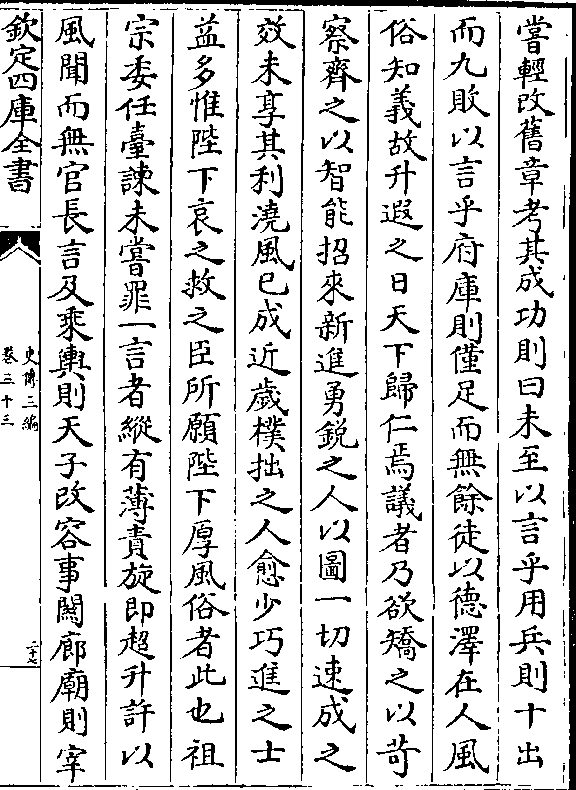 嘗輕改舊章考其成功則曰未至以言乎用兵則十出
而九敗以言乎府庫則僅足而無餘徒以德澤在人風
俗知義故升遐之日天下歸仁焉議者乃欲矯之以苛
察齊之以智能招來新進勇銳之人以圖一切速成之
效未享其利澆風已成近歲樸拙之人愈少巧進之士
益多惟陛下哀之救之臣所願陛下厚風俗者此也祖
宗委任臺諫未嘗罪一言者縱有薄責旋即超升許以
風聞而無官長言及乘輿則天子改容事闗廊廟則宰
欽定四庫全書
史傳三編
卷三十三
二十七